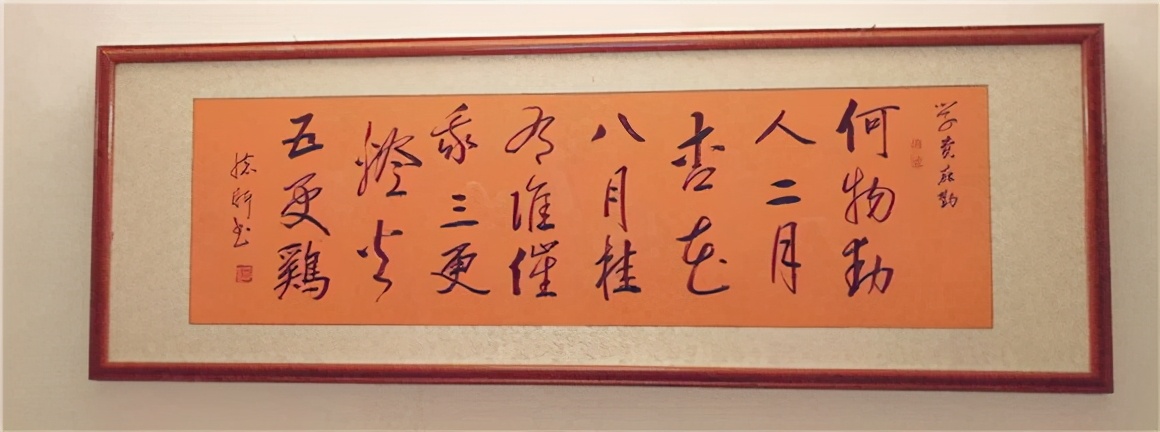 学贵在勤
何物动
人二月
杏花
八月桂
有谁催
我三更
燈火
五更鷄
轩书